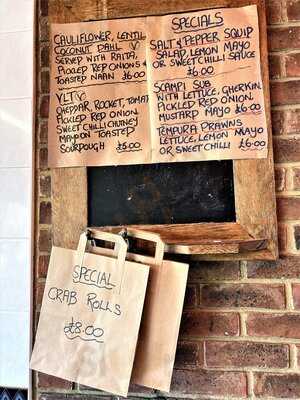 SPECIALS
CAULIFLOWER, LENTIL
COCONUT DAHL Ⓥ
SERVED WITH RAITA,
PICKLED RED ONIONS &
TOASTED NAAN £6.00
VLT Ⓥ
CHEDDAR, ROCKET, TOMATO
PICKLED RED ONION
SWEET CHILLI CHUTNEY
MAYO ON TOASTED
SOURDOUGH £5.00
SALT & PEPPER SQUID
SALAD, LEMON MAYO
OR SWEET CHILLI SAUCE
£6.00
SCAMPI SUB
WITH LETTUCE, GHERKIN,
PICKLED RED ONION
MUSTARD MAYO £6.00
TEMPURA PRAWNS
LETTUCE, LEMON MAYO
OR SWEET CHILLI £6.00
SPECIAL
CRAB ROLLS
£8.00